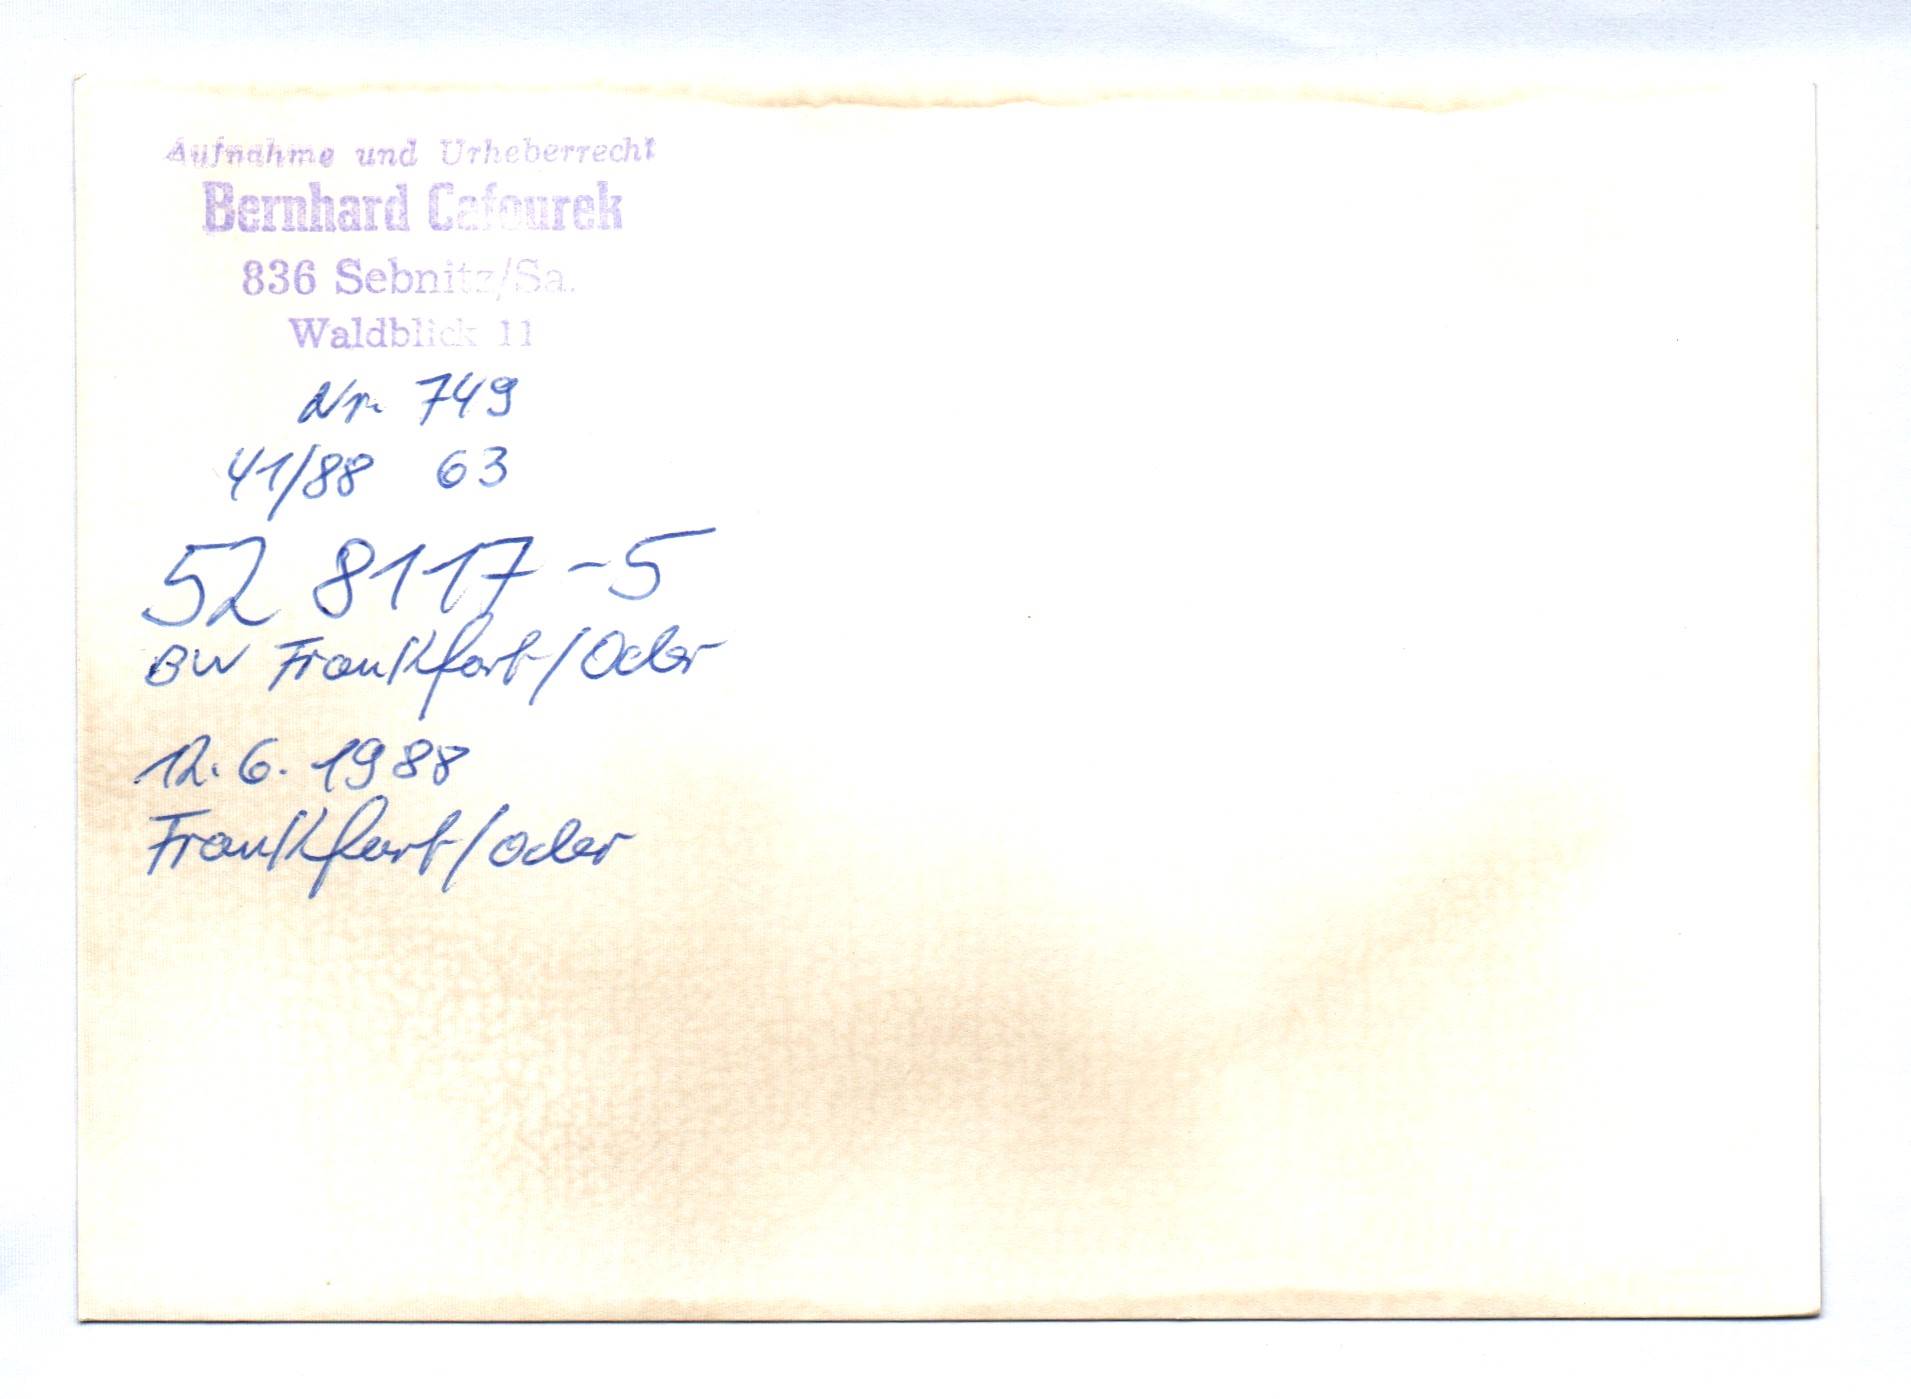 Aufnahme und Urheberrecht
Bernhard Cafourek
836 Sebnitz/Sa.
Waldblick 11
Nr. 749
41/88 63
52 8117-5
BW Frankfurt/Oder
12.6.1988
Frankfurt/oder